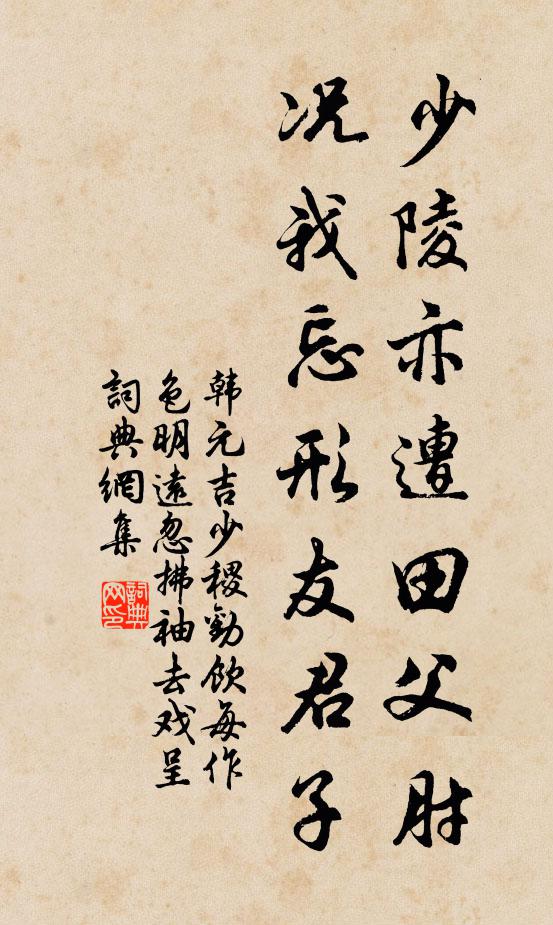 少陵亦遭田父肘
况我忘形友君子
韩元吉少稷勸飲每作
色明遠忽拂袖去戏呈
詞典網集
詞典网印